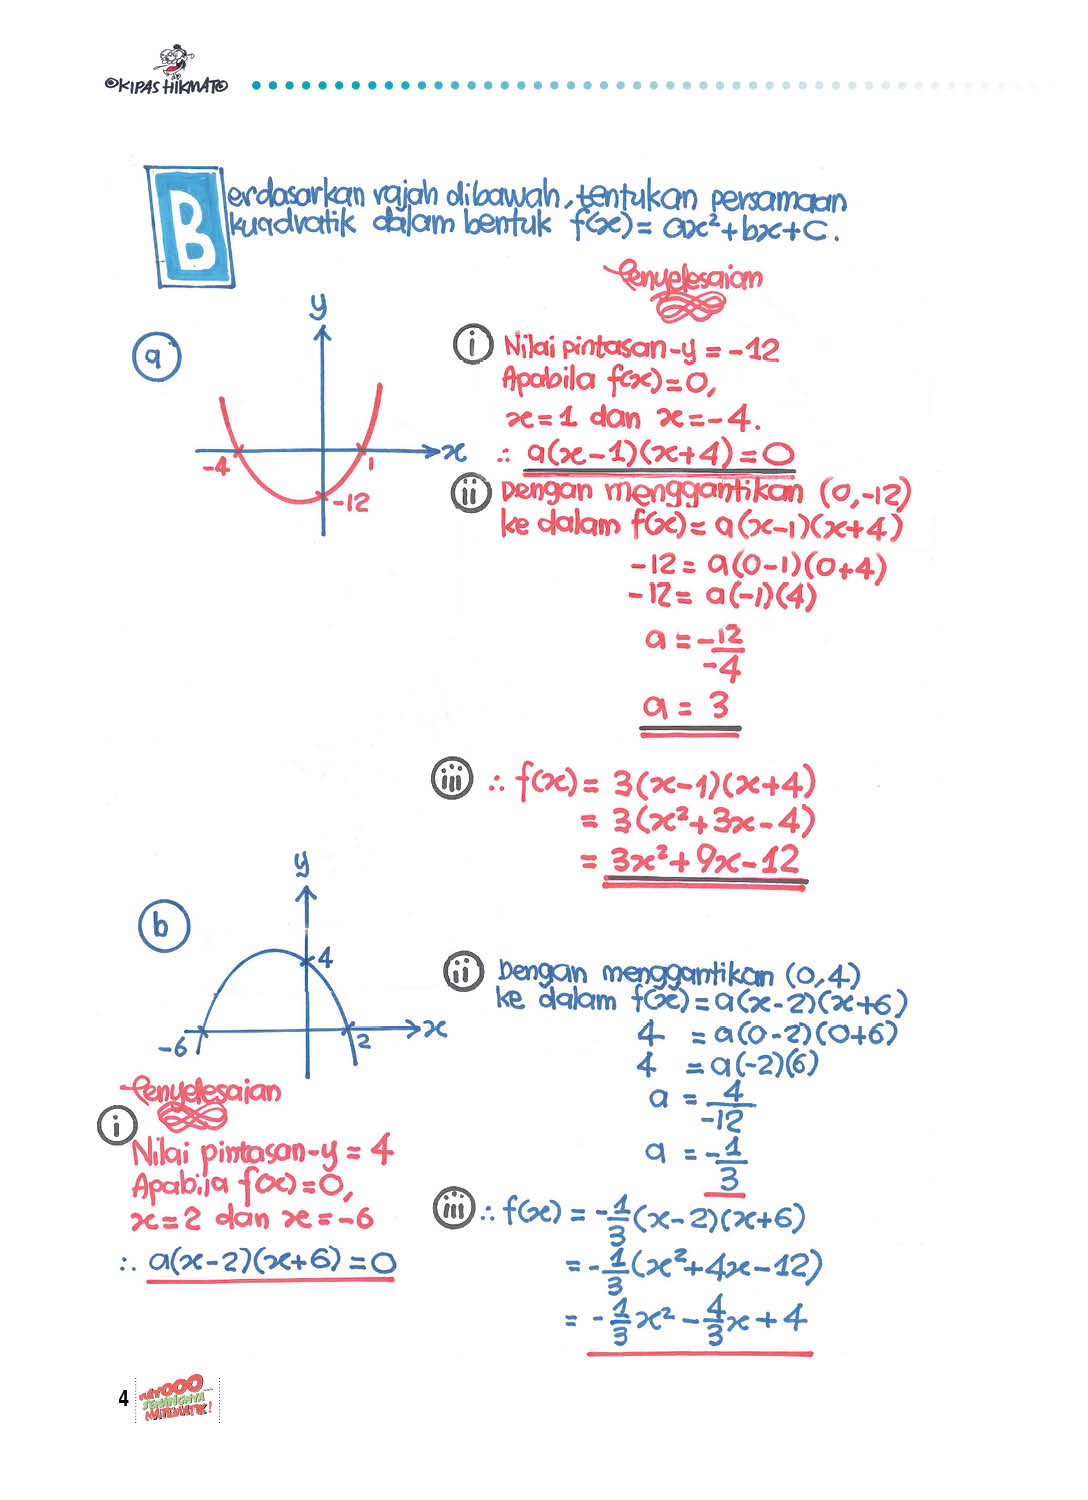 ©KIPAS HIKMAT©
Berdasarkan rajah dibawah, tentukan persamaan
kuadratik dalam bentuk f(x) = ax² + bx + c.
Penyelesaian
a
y
x
-4
1
-12
i Nilai pintasan-y = -12
Apabila f(x) = 0,
x = 1 dan x = -4.
∴ a(x-1)(x+4) = 0
ii Dengan menggantikan (0,-12)
ke dalam f(x) = a(x-1)(x+4)
-12 = a(0-1)(0+4)
-12 = a(-1)(4)
a = -12/-4
a = 3
iii ∴ f(x) = 3(x-1)(x+4)
= 3(x²+3x-4)
= 3x²+9x-12
b
y
4
x
-6
2
Penyelesaian
i
Nilai pintasan-y = 4
Apabila f(x) = 0,
x = 2 dan x = -6
∴ a(x-2)(x+6) = 0
ii Dengan menggantikan (0,4)
ke dalam f(x) = a(x-2)(x+6)
4 = a(0-2)(0+6)
4 = a(-2)(6)
a = 4/-12
a = -1/3
iii ∴ f(x) = -1/3(x-2)(x+6)
= -1/3(x²+4x-12)
= -1/3x² - 4/3x + 4
4
SENANGNYA
MATEMATIK!